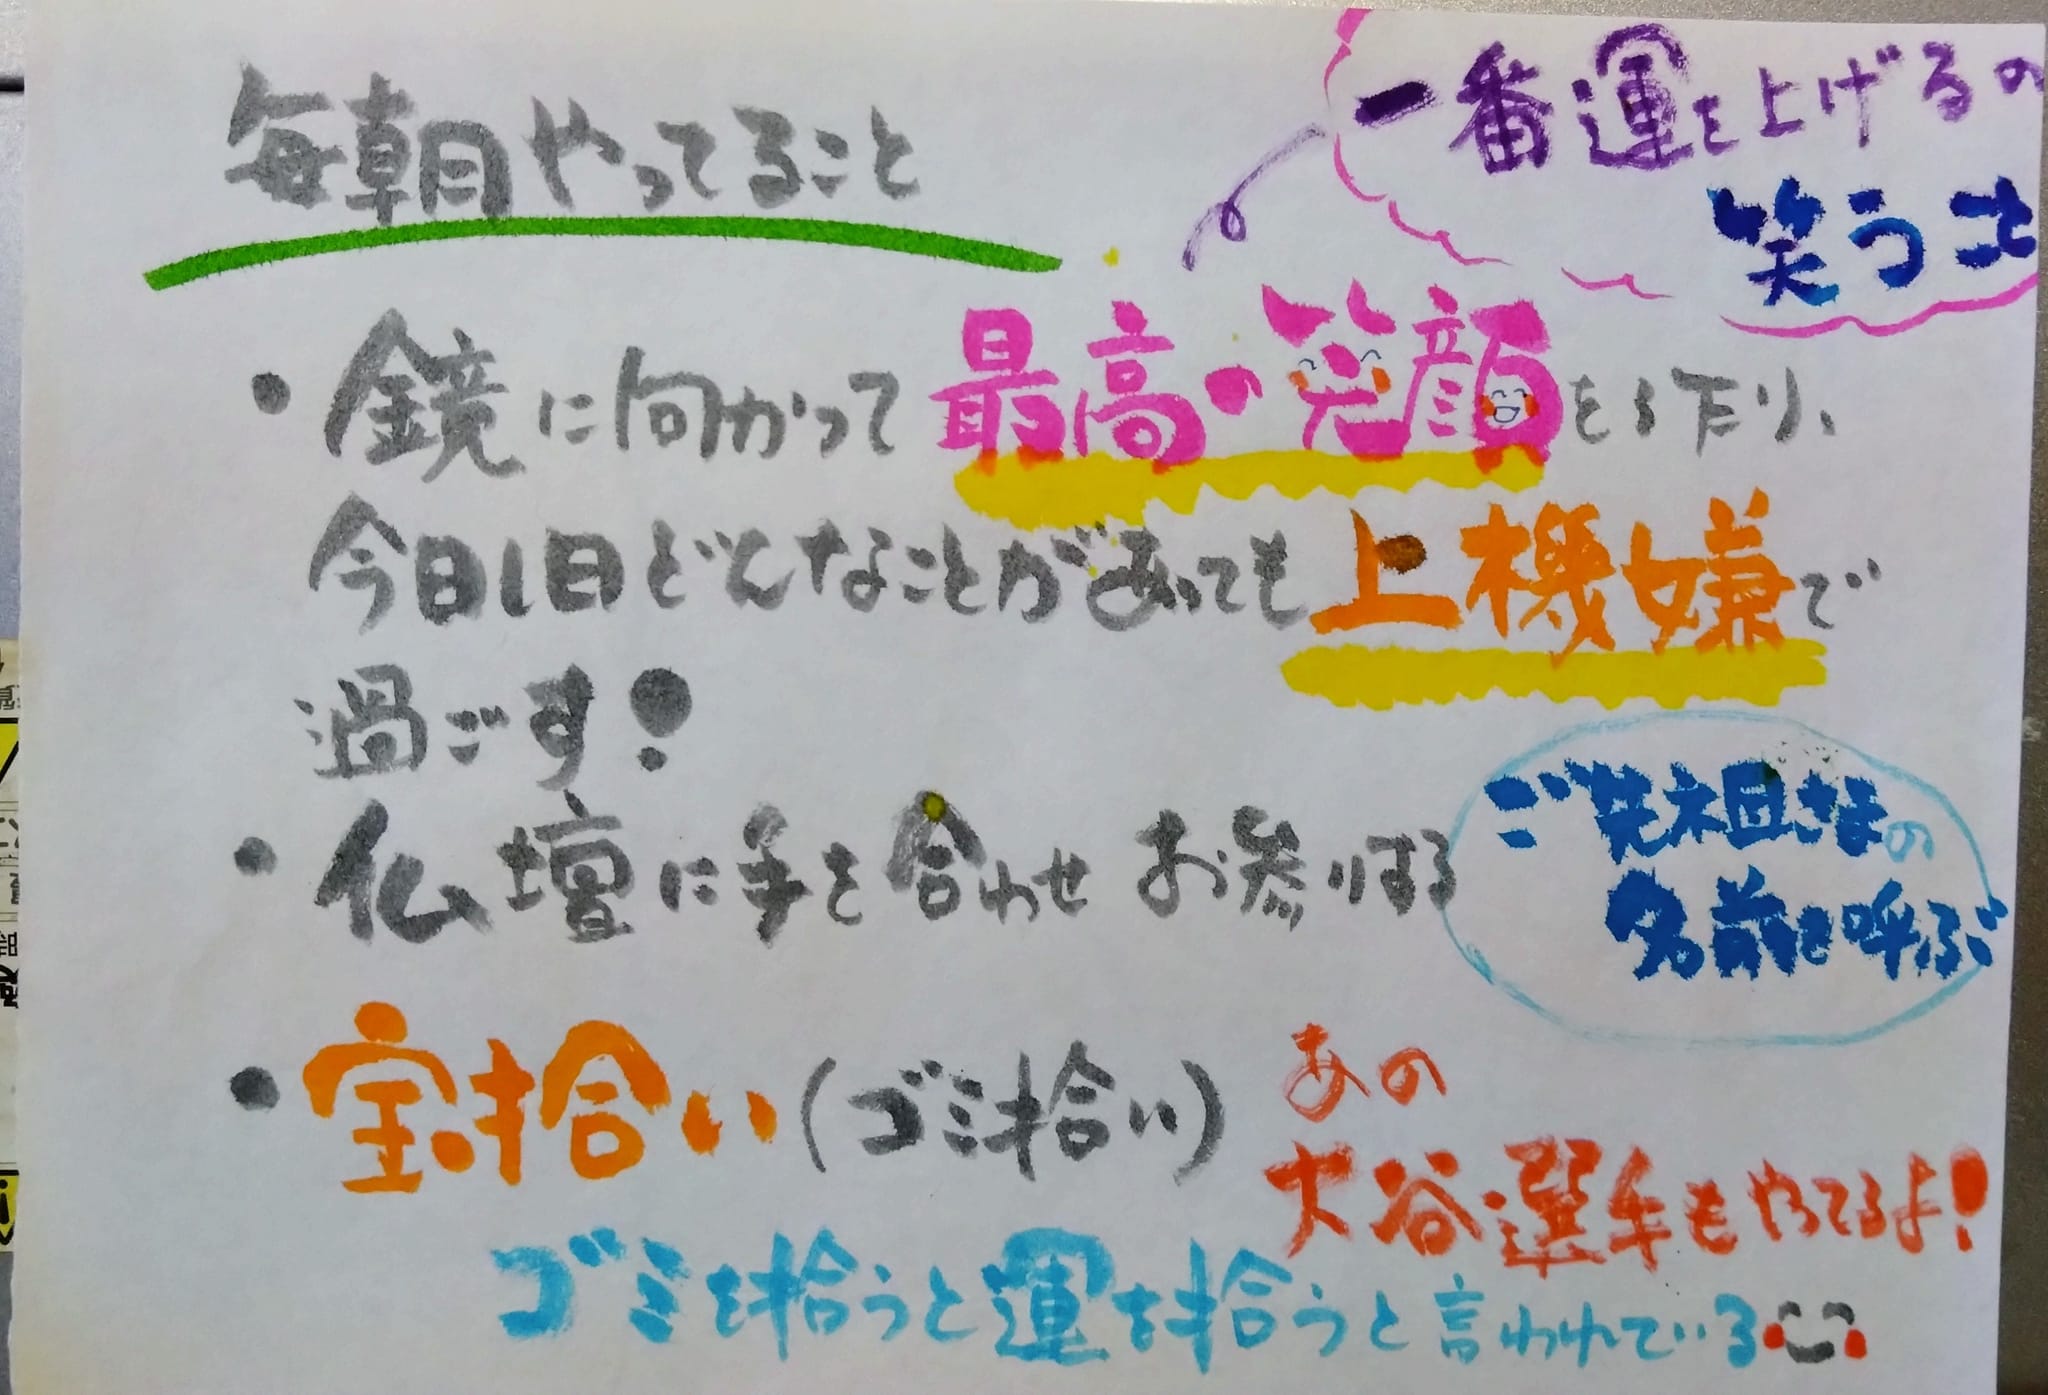 毎朝やってること
一番運を上げるの
笑うこと
・鏡に向かって最高の笑顔をしたり、
今日1日どんなことがあっても上機嫌で
過ごす!
・仏壇に手を合わせ お参りする
ご先祖さまの
名前を呼ぶ
・宝拾い(ゴミ拾い)
あの
大谷選手もやってるよ!
ゴミを拾うと運を拾うと言われている